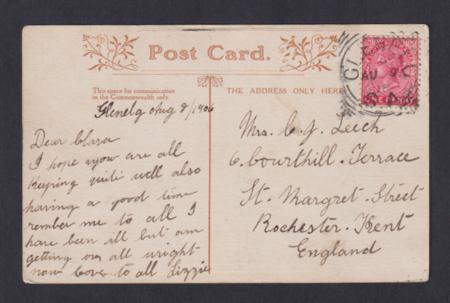 Post Card.
This space for communication
in the Commonwealth only.
THE ADDRESS ONLY HERE
Glenelg Aug 8/1906
Dear Clara
I hope you are all
keeping quite well also
having a good time
rember me to all I
have been ill but am
getting on all wright
now Love to all Lizzie
Mrs. C. J. Leech
6. Courthill. Terrace
St. Margret. Street
Rochester. Kent
England
GLENELG
AU 9